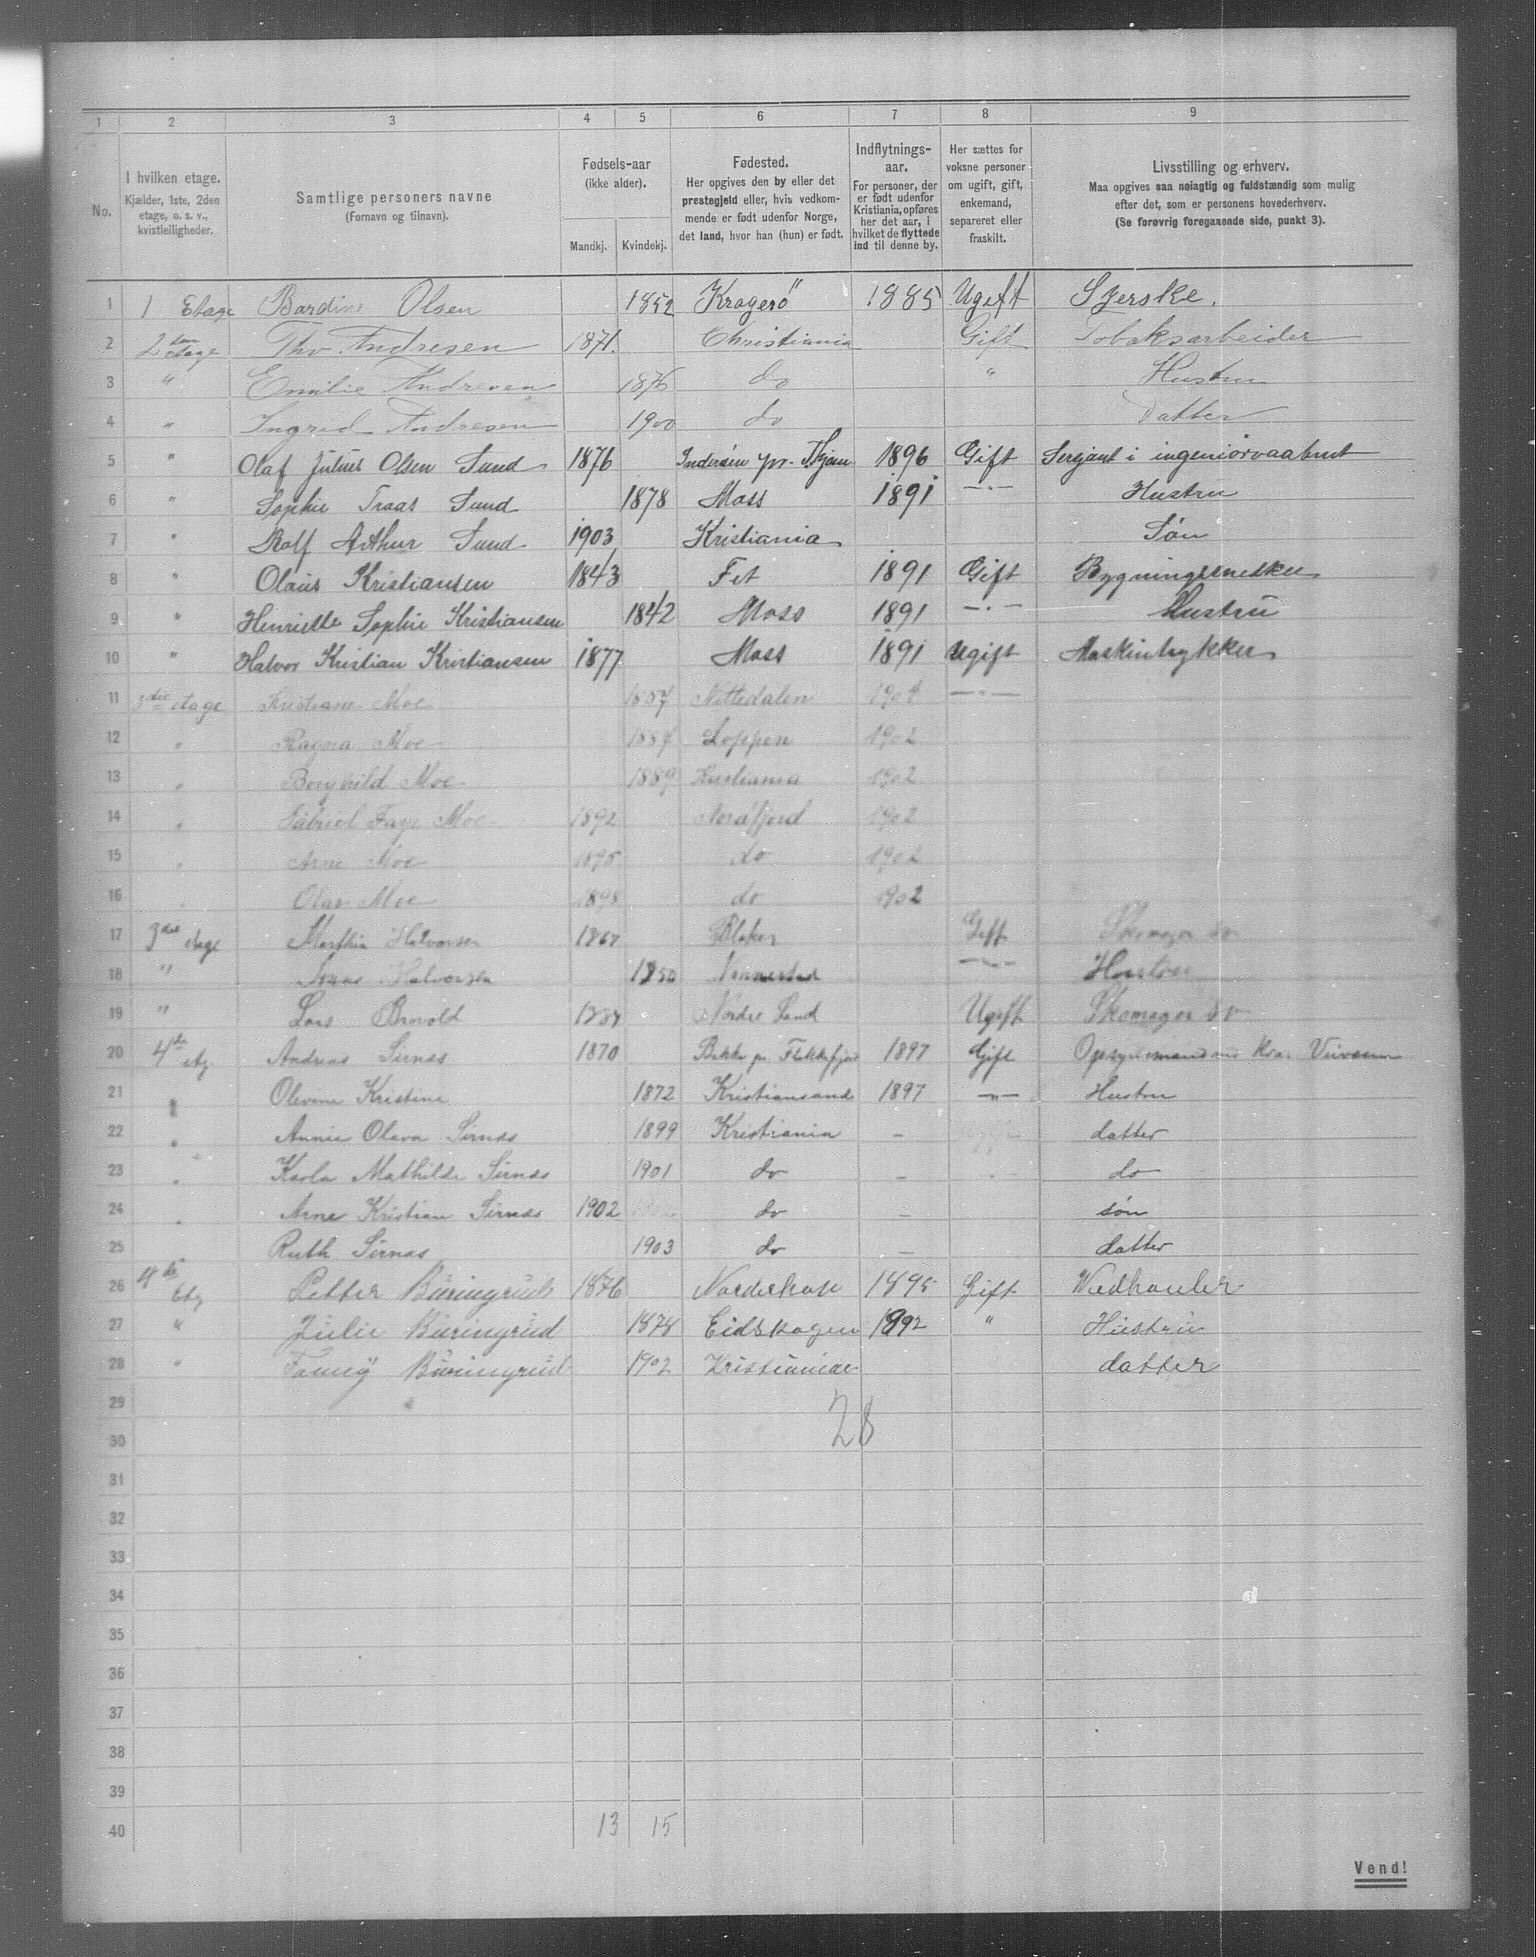 1 2 3 4 5 6 7 8 9
No.
I hvilken etage.
Kjælder, 1ste, 2den
etage, o. s. v.,
kvistleiligheder.
Samtlige personers navne
(Fornavn og tilnavn).
Fødsels-aar
(ikke alder).
Mandkj. Kvindekj.
Fødested.
Her opgives den by eller det
prestegjeld eller, hvis vedkom-
mende er født udenfor Norge,
det land, hvor han (hun) er født.
Indflytnings-
aar.
For personer, der
er født udenfor
Kristiania, opføres
her det aar, i
hvilket de flyttede
ind til denne by.
Her sættes for
voksne personer
om ugift, gift,
enkemand,
separeret eller
fraskilt.
Livsstilling og erhverv.
Maa opgives saa nøiagtig og fuldstændig som mulig
efter det, som er personens hovederhverv.
(Se forøvrig foregaaende side, punkt 3).
1 1 Etage Bardine Olsen 1852 Kragerö 1885 Ugift Syerske.
2 2den etage Thv. Andresen 1871 Christiania Gift Tobaksarbeider
3 " Emilie Andresen 1876 do " Hustru
4 " Ingrid Andresen 1900 do Datter
5 " Olaf Julius Olsen Sund 1876 Inderøen pr. 1896 Gift Serjant i ingeniørvaabnet
6 " Sophie Traas Sund 1878 Moss 1891 —"— Hustru
7 " Rolf Arthur Sund 1903 Kristiania Søn
8 " Olaus Kristiansen 1843 Fet 1891 Gift Bygningssnekker
9 " Henriette Sophie Kristiansen 1842 Moss 1891 —"— Hustru
10 " Halvor Kristian Kristiansen 1877 Moss 1891 Ugift Maskintrykker
11 3die etage Kristiane Moe 1857 Nittedalen 1904 —"—
12 " Ragna Moe 1887 Loppen 1902
13 " Borghild Moe 1889 Kristiania 1902
14 " Gabriel Faye Moe 1892 Nordfjord 1902
15 " Arne Moe 1895 do 1902
16 " Olav Moe 1898 do 1902
17 3die etage Halvorsen Blaker Gift Skomager
18 " Halvorsen 1850 —"— Hustru
19 " Lars Nordre Land Ugift Skomager
20 4de etg Andreas Sirnæs 1870 Bakke pr Flekkefjord 1897 Gift Opsynsmand Veivæsen
21 " Olevine Kristine 1872 Kristiansand 1897 —"— Hustru
22 " Annie Olava Sirnæs 1899 Kristiania — datter
23 " Karla Mathilde Sirnæs 1901 do — do
24 " Arne Kristian Sirnæs 1902 do — søn
25 " Ruth Sirnæs 1903 do — datter
26 4de Etg Petter Büringrud 1876 Norderhov 1895 Gift Vedhandler
27 " Julie Büringrüd 1878 Eidskogen 1892 " Hüstrü
28 " Fanny Büringrüd 1902 Kristianiae datter
29 28
30
31
32
33
34
35
36
37
38
39
40 13 15
Vend!